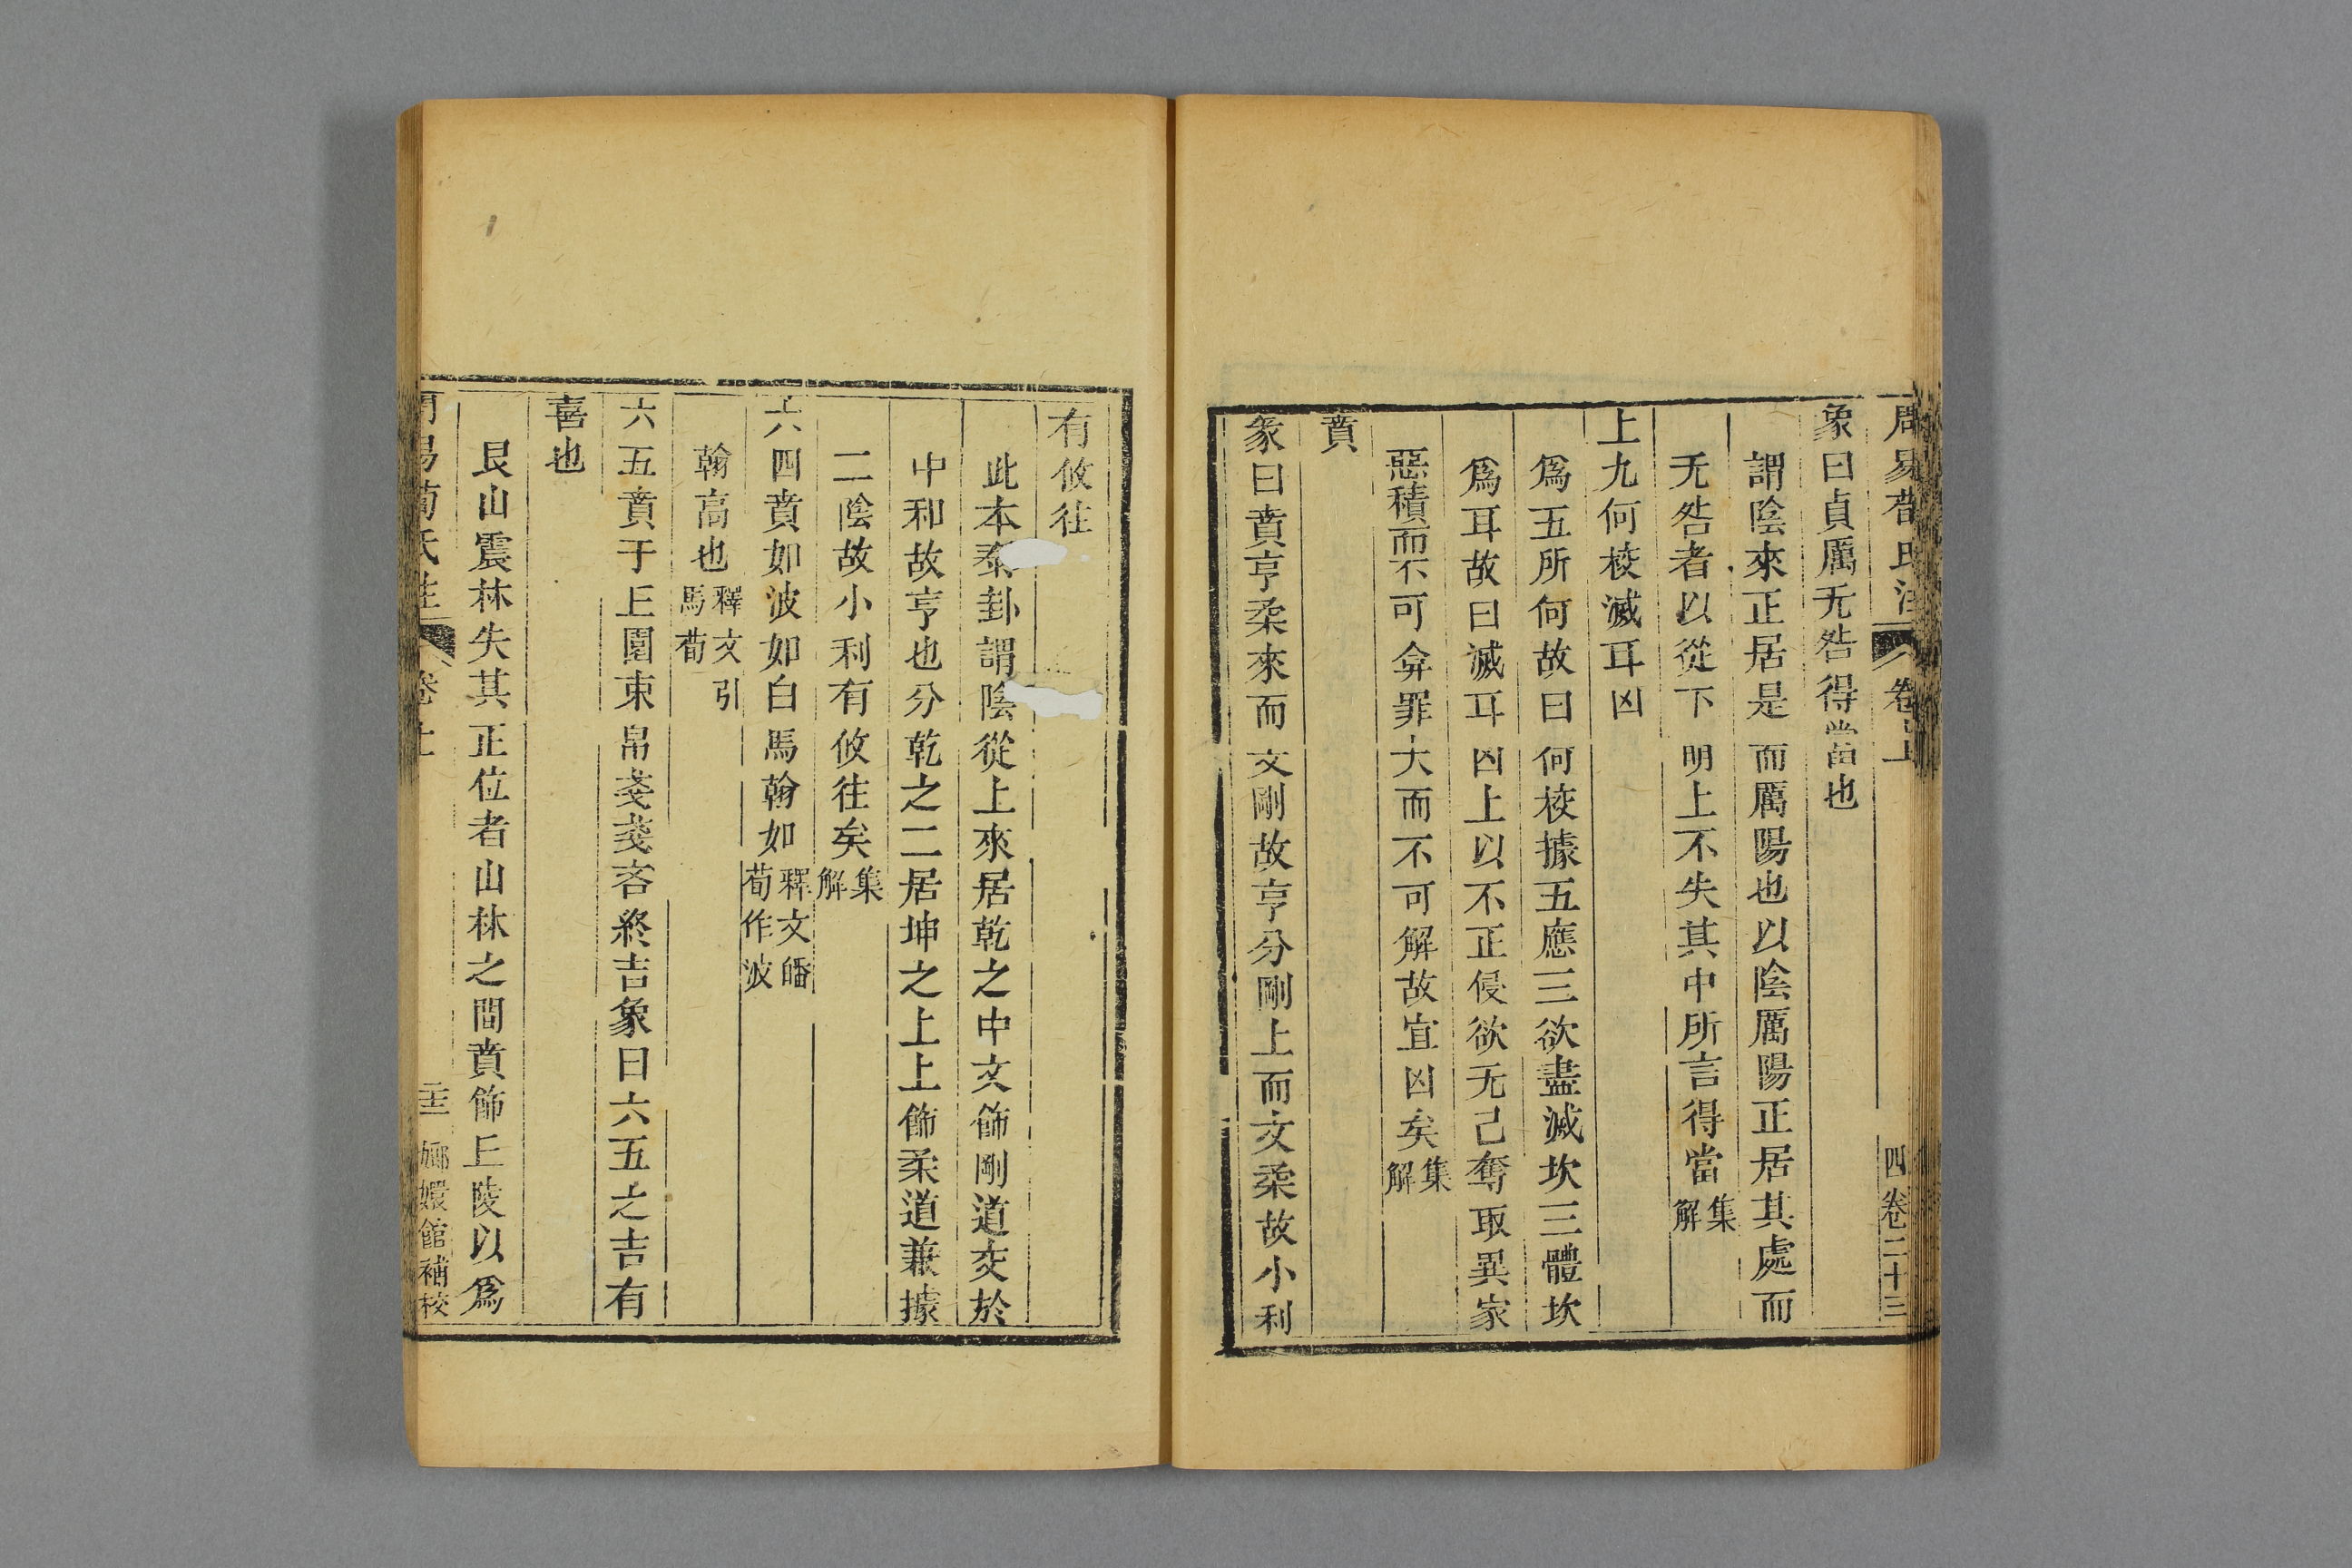 周易荀氏注 卷上 四卷二十三
象曰貞厲无咎得當也
謂陰來正居是而厲陽也以陰厲陽正居其處而
无咎者以從下明上不失其中所言得當集解
上九何校滅耳凶
爲五所何故曰何校據五應三欲盡滅坎三體坎
爲耳故曰滅耳凶上以不正侵欲无己奪取異家
惡積而不可弇罪大而不可解故宜凶矣集解
賁
彖曰賁亨柔來而文剛故亨分剛上而文柔故小利
有攸往
此本泰卦謂陰從上來居乾之中文飾剛道交於
中和故亨也分乾之二居坤之上上飾柔道兼據
二陰故小利有攸往矣集解
六四賁如波如白馬翰如釋文皤荀作波
翰高也釋文引馬荀
六五賁于丘園束帛戔戔吝終吉象曰六五之吉有
喜也
艮山震林失其正位者山林之間賁飾丘陵以爲
周易荀氏注 卷上 嫏嬛館補校